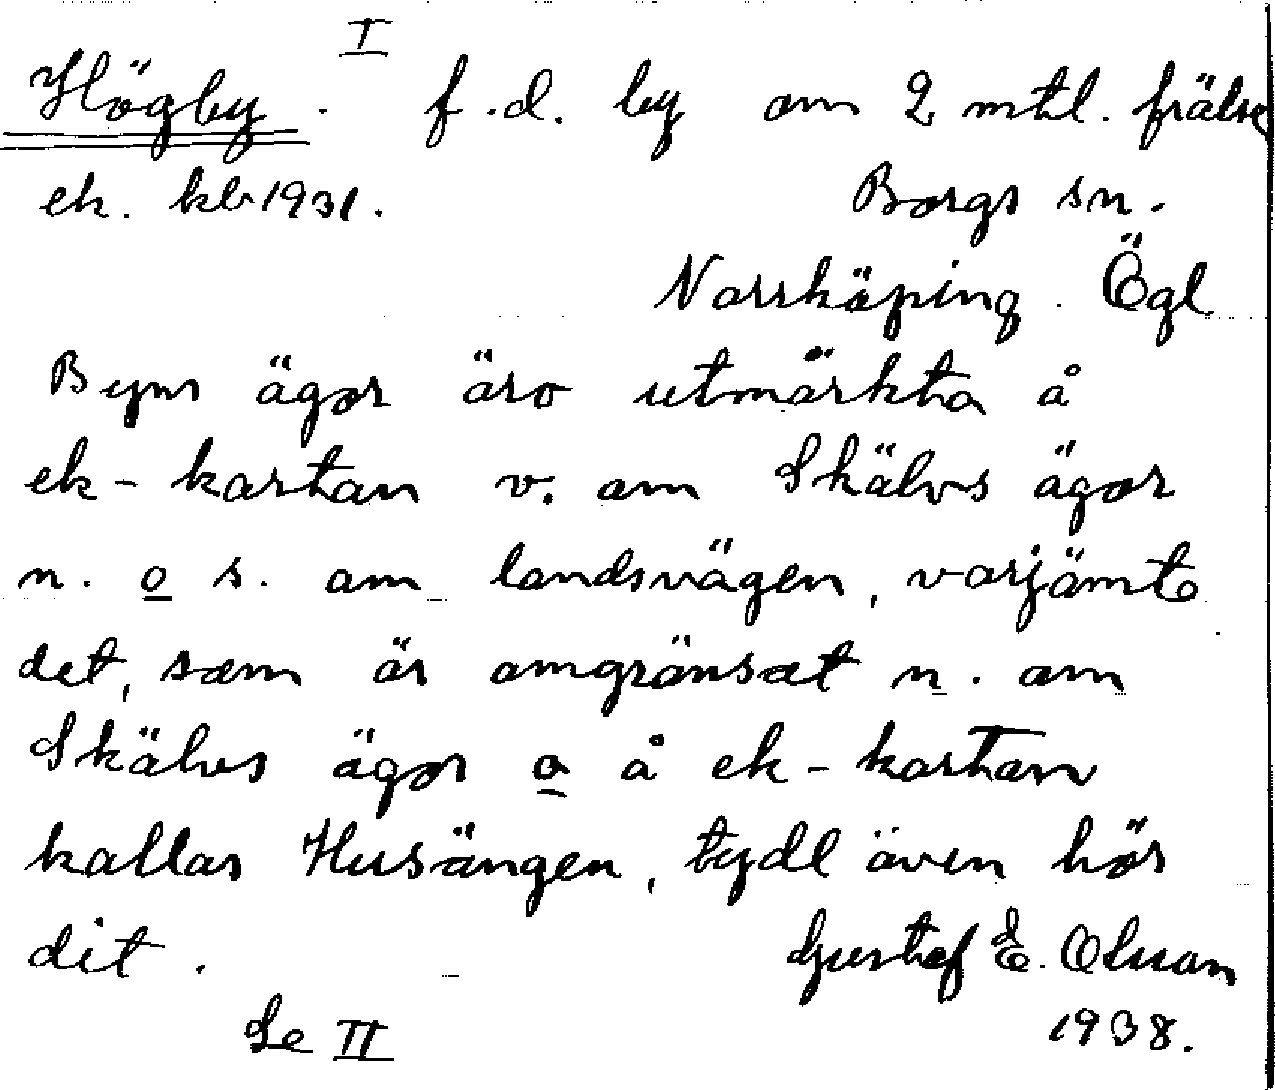 I
Högby. f.d. by om 2 mtl. frälse
ek. kb 1931. Borgs sn.
Norrköping. Ögl
Byns ägor äro utmärkta å
ek-kartan v. om Skälvs ägor
n. o s. om landsvägen, varjämte
det, som är omgränsat n. om
Skälvs ägor o å ek-kartan
kallas Husängen, tydl även hör
dit. Gustaf E. Olsson
Se II 1938.